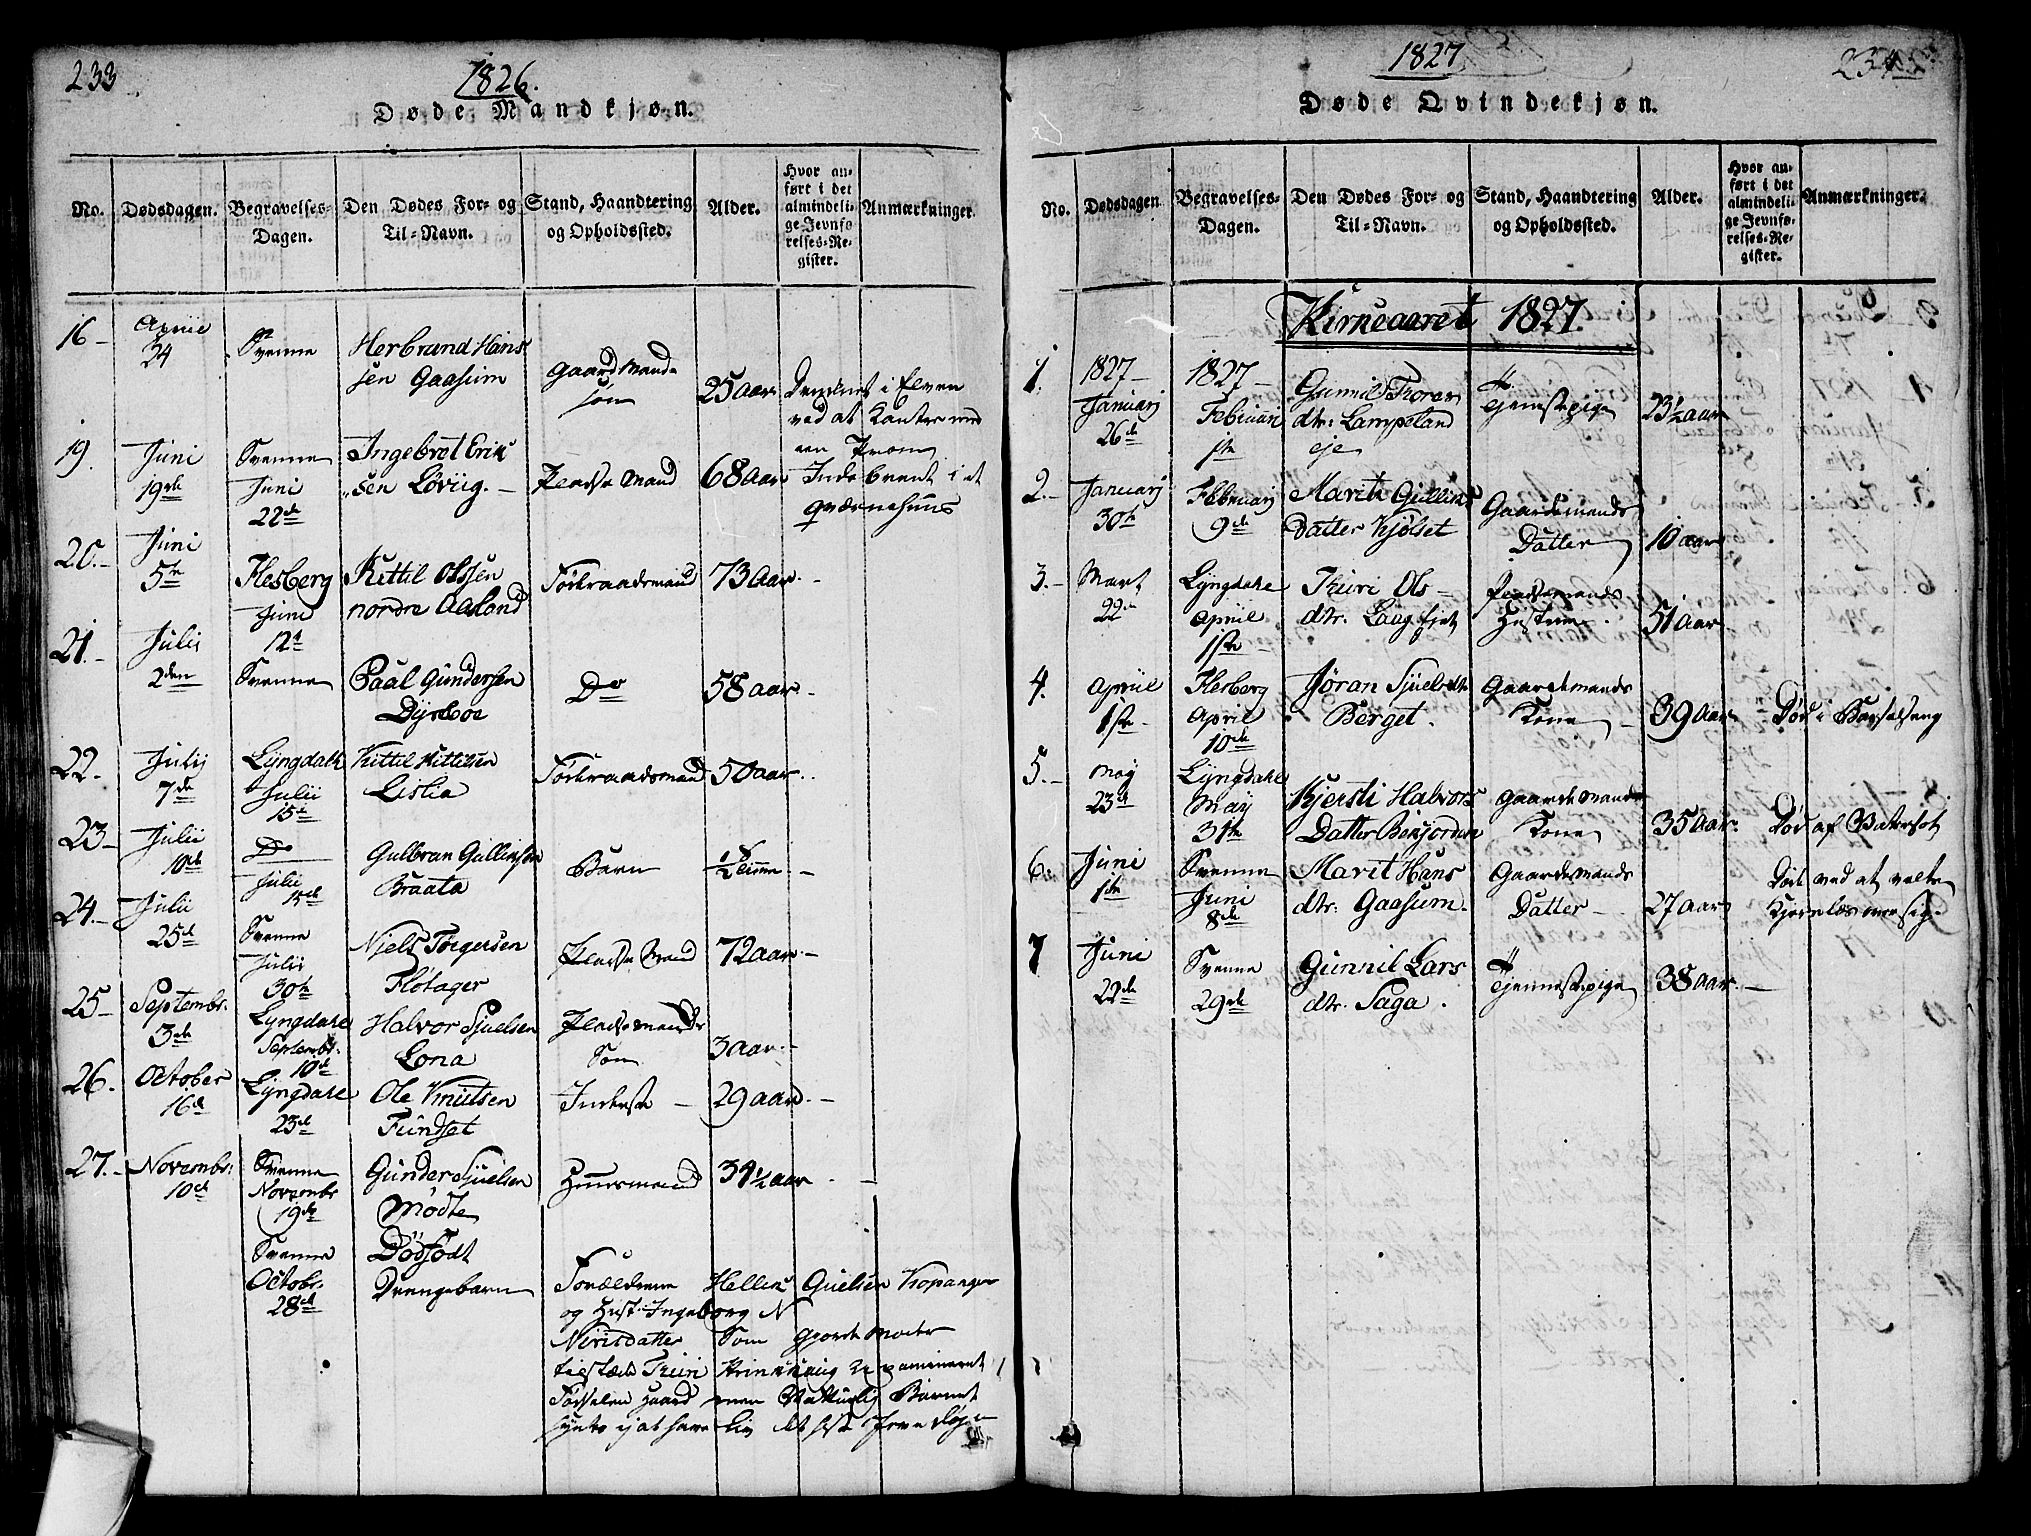 233
1826.
Døde Mandkjøn.
No. Dødsdagen. Begravelses-Dagen. Den Dødes For- og Til-Navn. Stand, Haandtering og Opholdssted. Alder. Hvor anført i det almindelige Jevnførelses-Register. Anmærkninger.
16 Aprill 24 Svenne Herbrand Hanssen Gaasum Gaardmands søn 25 aar Druknet i Elven ved at Kantre med en Pram
19. Juni 19de Svenne Juni 22de Ingebret Eriksen Løvug. Pladsemand 68 aar Indebrent i et qværnehuus
20. Juni 5te Flesberg Juni 12te Kittil Olssen nordre Aasland Føderaadsmand 73 aar
21. Julij 2den Svenne Paal Gundersen Do 58 aar
22. Julij 7de Lyngdahl Julii 15de Kittil Kittilsen Lislia Føderaadsmand 50 aar
23 Julii 10de Do Julii 15de Gulbran Gullixsen Braata Barn 1/2 Time
24. Julii 25de Svenne Julii 30te Niels Torgersen Flötager Pladsemand 72 aar
25 Septembr. 3de Lyngdale Septembr. 10de Halvor Sjuelsen Lona Pladsemands Søn 3 aar
26. October 16de Lyngdale 23de Ole Knutsen Fundset Inderste 29 aar
27. Novembr: 10de Svenne Novembr 19de Gunder Sjuelsen Mødte Huusmand 34 1/2 aar
Svenne Octobr. 28de Dödfödt Drengebarn Forældrene Hellik Guelsen Kopanger
og Hust: Ingeborg N
Nirisdatter Som Gjordemoder
tilstæde Turi
men Barnet
234
1827
Døde Qvindekjøn.
No. Dødsdagen Begravelses-Dagen. Den Dødes For- og Til-Navn. Stand, Haandtering og Opholdssted. Alder. Hvor anført i det almindelige Jevnførelses-Register. Anmærkninger.
Kirkeaaret 1827.
1. 1827 Januarj 26de 1827 Februari 1ste Gunil Toresdtr: Lampeland eje Tjenestepige 23 1/2 aar
2. Januarj 30te Februarj 9de Marith Gulliks Datter Kjølset Gaardemands Datter 10 aar
3. Mart 22de Lyngdale Aprill 1ste Turi Ols dtr. Laagfjet Pladsemands Hustrue 51 aar
4. Aprill 1ste Flesberg April 10de Jøran Sjuelsdtr Berget. Gaardemands Kone 39 aar Död i Barselseng
5. May 23de Lyngdale May 31te Kjersti Halvors Datter Gaardemands Kone 35 aar Död af Vatersot
6. Juni 1ste Svenne Juni 8de Marit Hans dtr: Gaasum. Gaardemands Datter 27 aar Død ved at velte Kjørelæs over sig.
7 Juni 22de Svenne 29de Gunnil Lars dtr. Saga. Tjenestepige 38 aar.